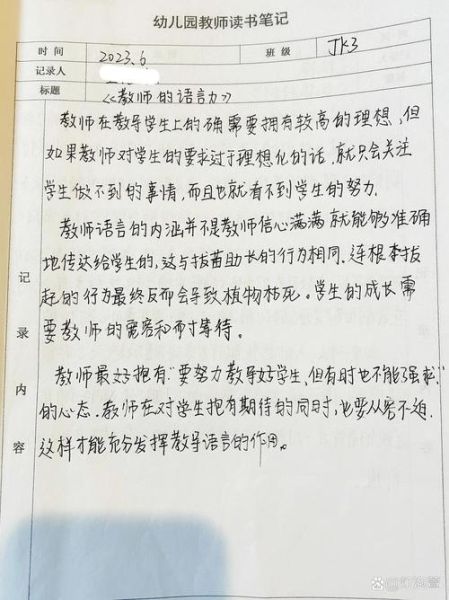 幼儿园教师读书笔记
时间 2023.6 班级 JK3
记录人
标题 《教师的语言力》
记录内容
教师在教导学生上的确需要拥有较高的理想，但
如果教师对学生的要求过于理想化的话，就只会关注
学生做不到的事情，而且也就看不到学生的努力.
教师语言的内涵并不是教师信心满满就能够准确
地传达给学生的，这与拔苗助长的行为相同.连根拔
起的行为最终反而会导致植物枯死。学生的成长需
要教师的宽容和耐等待。
教师最好抱有"要努力教导好学生,但有时也不能强求"
的心态.教师在对学生抱有期待的同时,也要从容不迫.
这样才能充分发挥教导语言的作用。